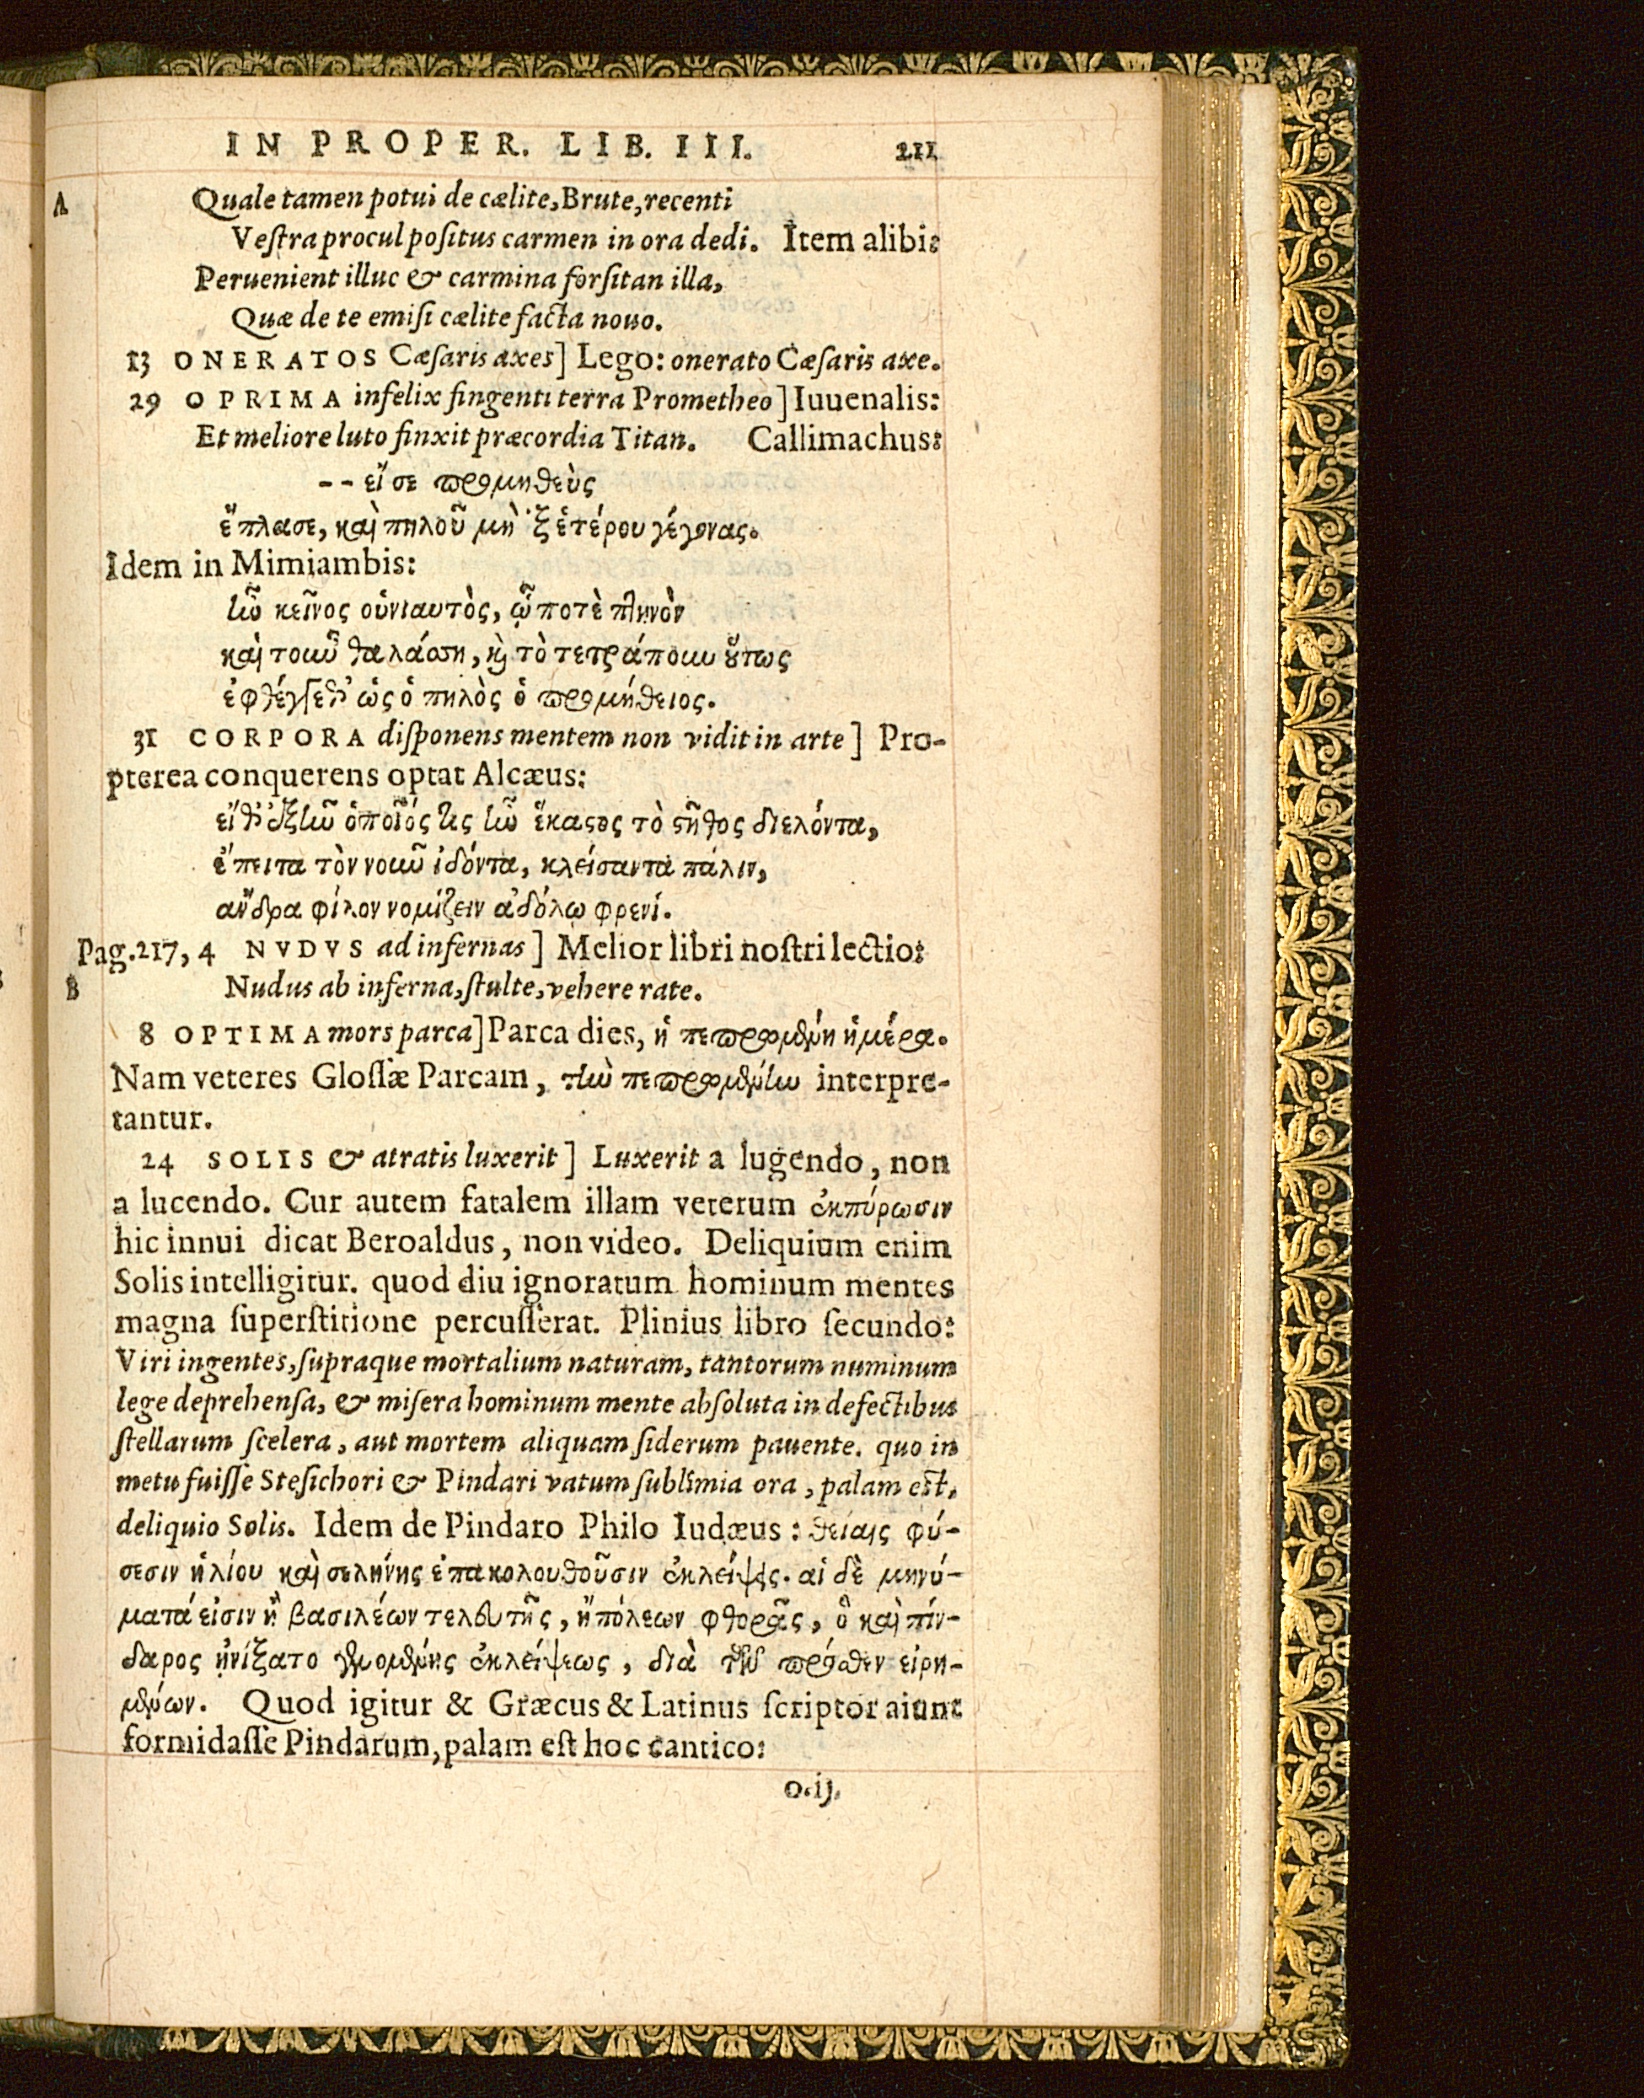 IN PROPER. LIB. III. 211
A Quale tamen potui de cælite, Brute, recenti
Veſtra procul poſitus carmen in ora dedi. Item alibi:
Peruenient illuc & carmina forſitan illa,
Quæ de te emiſi cælite facta nouo.
13 ONERATOS Cæſaris axes] Lego: onerato Cæſaris axe.
29 O PRIMA infelix fingenti terra Prometheo] Iuuenalis:
Et meliore luto finxit præcordia Titan. Callimachus:
-- εἴ σε προμηθεὺς
ἔπλασε, καὶ πηλοῦ μὴ 'ξ ἑτέρου γέγονας.
Idem in Mimiambis:
ἦν κεῖνος οὑνιαυτὸς, ᾧ ποτὲ πτηνὸν
καὶ τοὖν θαλάσσῃ, καὶ τὸ τετράπουν οὕτως
ἐφθέγγεθ' ὡς ὁ πηλὸς ὁ προμήθειος.
31 CORPORA diſponens mentem non vidit in arte] Pro-
pterea conquerens optat Alcæus:
εἴθ' ἐξῆν ὁποῖός τις ἦν ἕκαστος τὸ στῆθος διελόντα,
ἔπειτα τὸν νοῦν ἰδόντα, κλείσαντα πάλιν,
ἄνδρα φίλον νομίζειν ἀδόλῳ φρενί.
Pag. 217, 4 NVDVS ad infernas] Melior libri noſtri lectio:
B Nudus ab inferna, ſtulte, vehere rate.
8 OPTIMA mors parca] Parca dies, ἡ πεπρωμένη ἡμέρα.
Nam veteres Gloſſæ Parcam, τὴν πεπρωμένην interpre-
tantur.
24 SOLIS & atratis luxerit] Luxerit a lugendo, non
a lucendo. Cur autem fatalem illam veterum ἐκπύρωσιν
hic innui dicat Beroaldus, non video. Deliquium enim
Solis intelligitur. quod diu ignoratum hominum mentes
magna ſuperſtitione percuſſerat. Plinius libro ſecundo:
Viri ingentes, ſupraque mortalium naturam, tantorum numinum
lege deprehenſa, & miſera hominum mente abſoluta in defectibus
ſtellarum ſcelera, aut mortem aliquam ſiderum pauente. quo in
metu fuiſſe Steſichori & Pindari vatum ſublimia ora, palam eſt,
deliquio Solis. Idem de Pindaro Philo Iudæus: θείαις φύ-
σεσιν ἡλίου καὶ σελήνης ἐπακολουθοῦσιν ἐκλείψεις. αἱ δὲ μηνύ-
ματά εἰσιν ἢ βασιλέων τελευτῆς, ἢ πόλεων φθορᾶς, ὃ καὶ πίν-
δαρος ᾐνίξατο γενομένης ἐκλείψεως, διὰ τῶν πρόσθεν εἰρη-
μένων. Quod igitur & Græcus & Latinus ſcriptor aiunt
formidaſſe Pindarum, palam eſt hoc cantico:
O.ij.